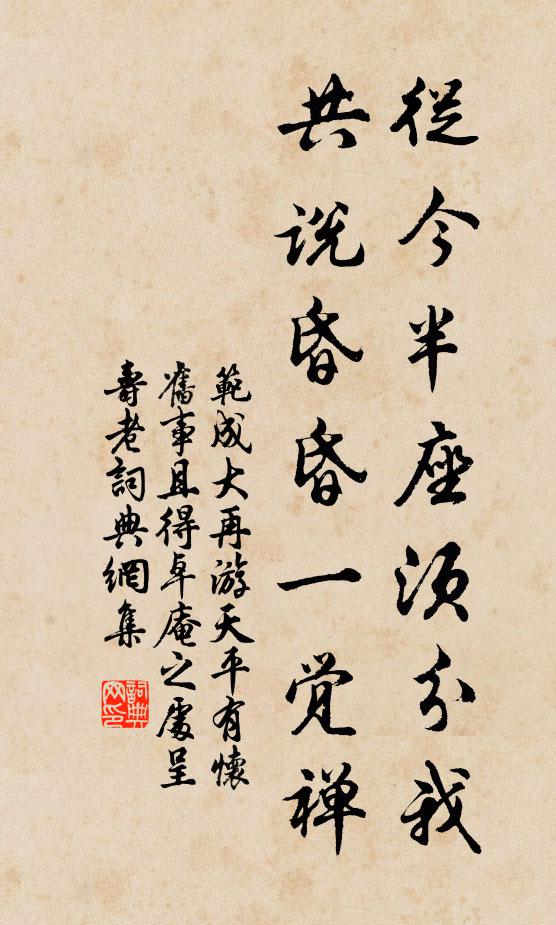 從今半座須分我
共说昏昏一觉禅
範成大再游天平有懷
舊事且得卓庵之處呈
壽老詞典網集
詞典
网印